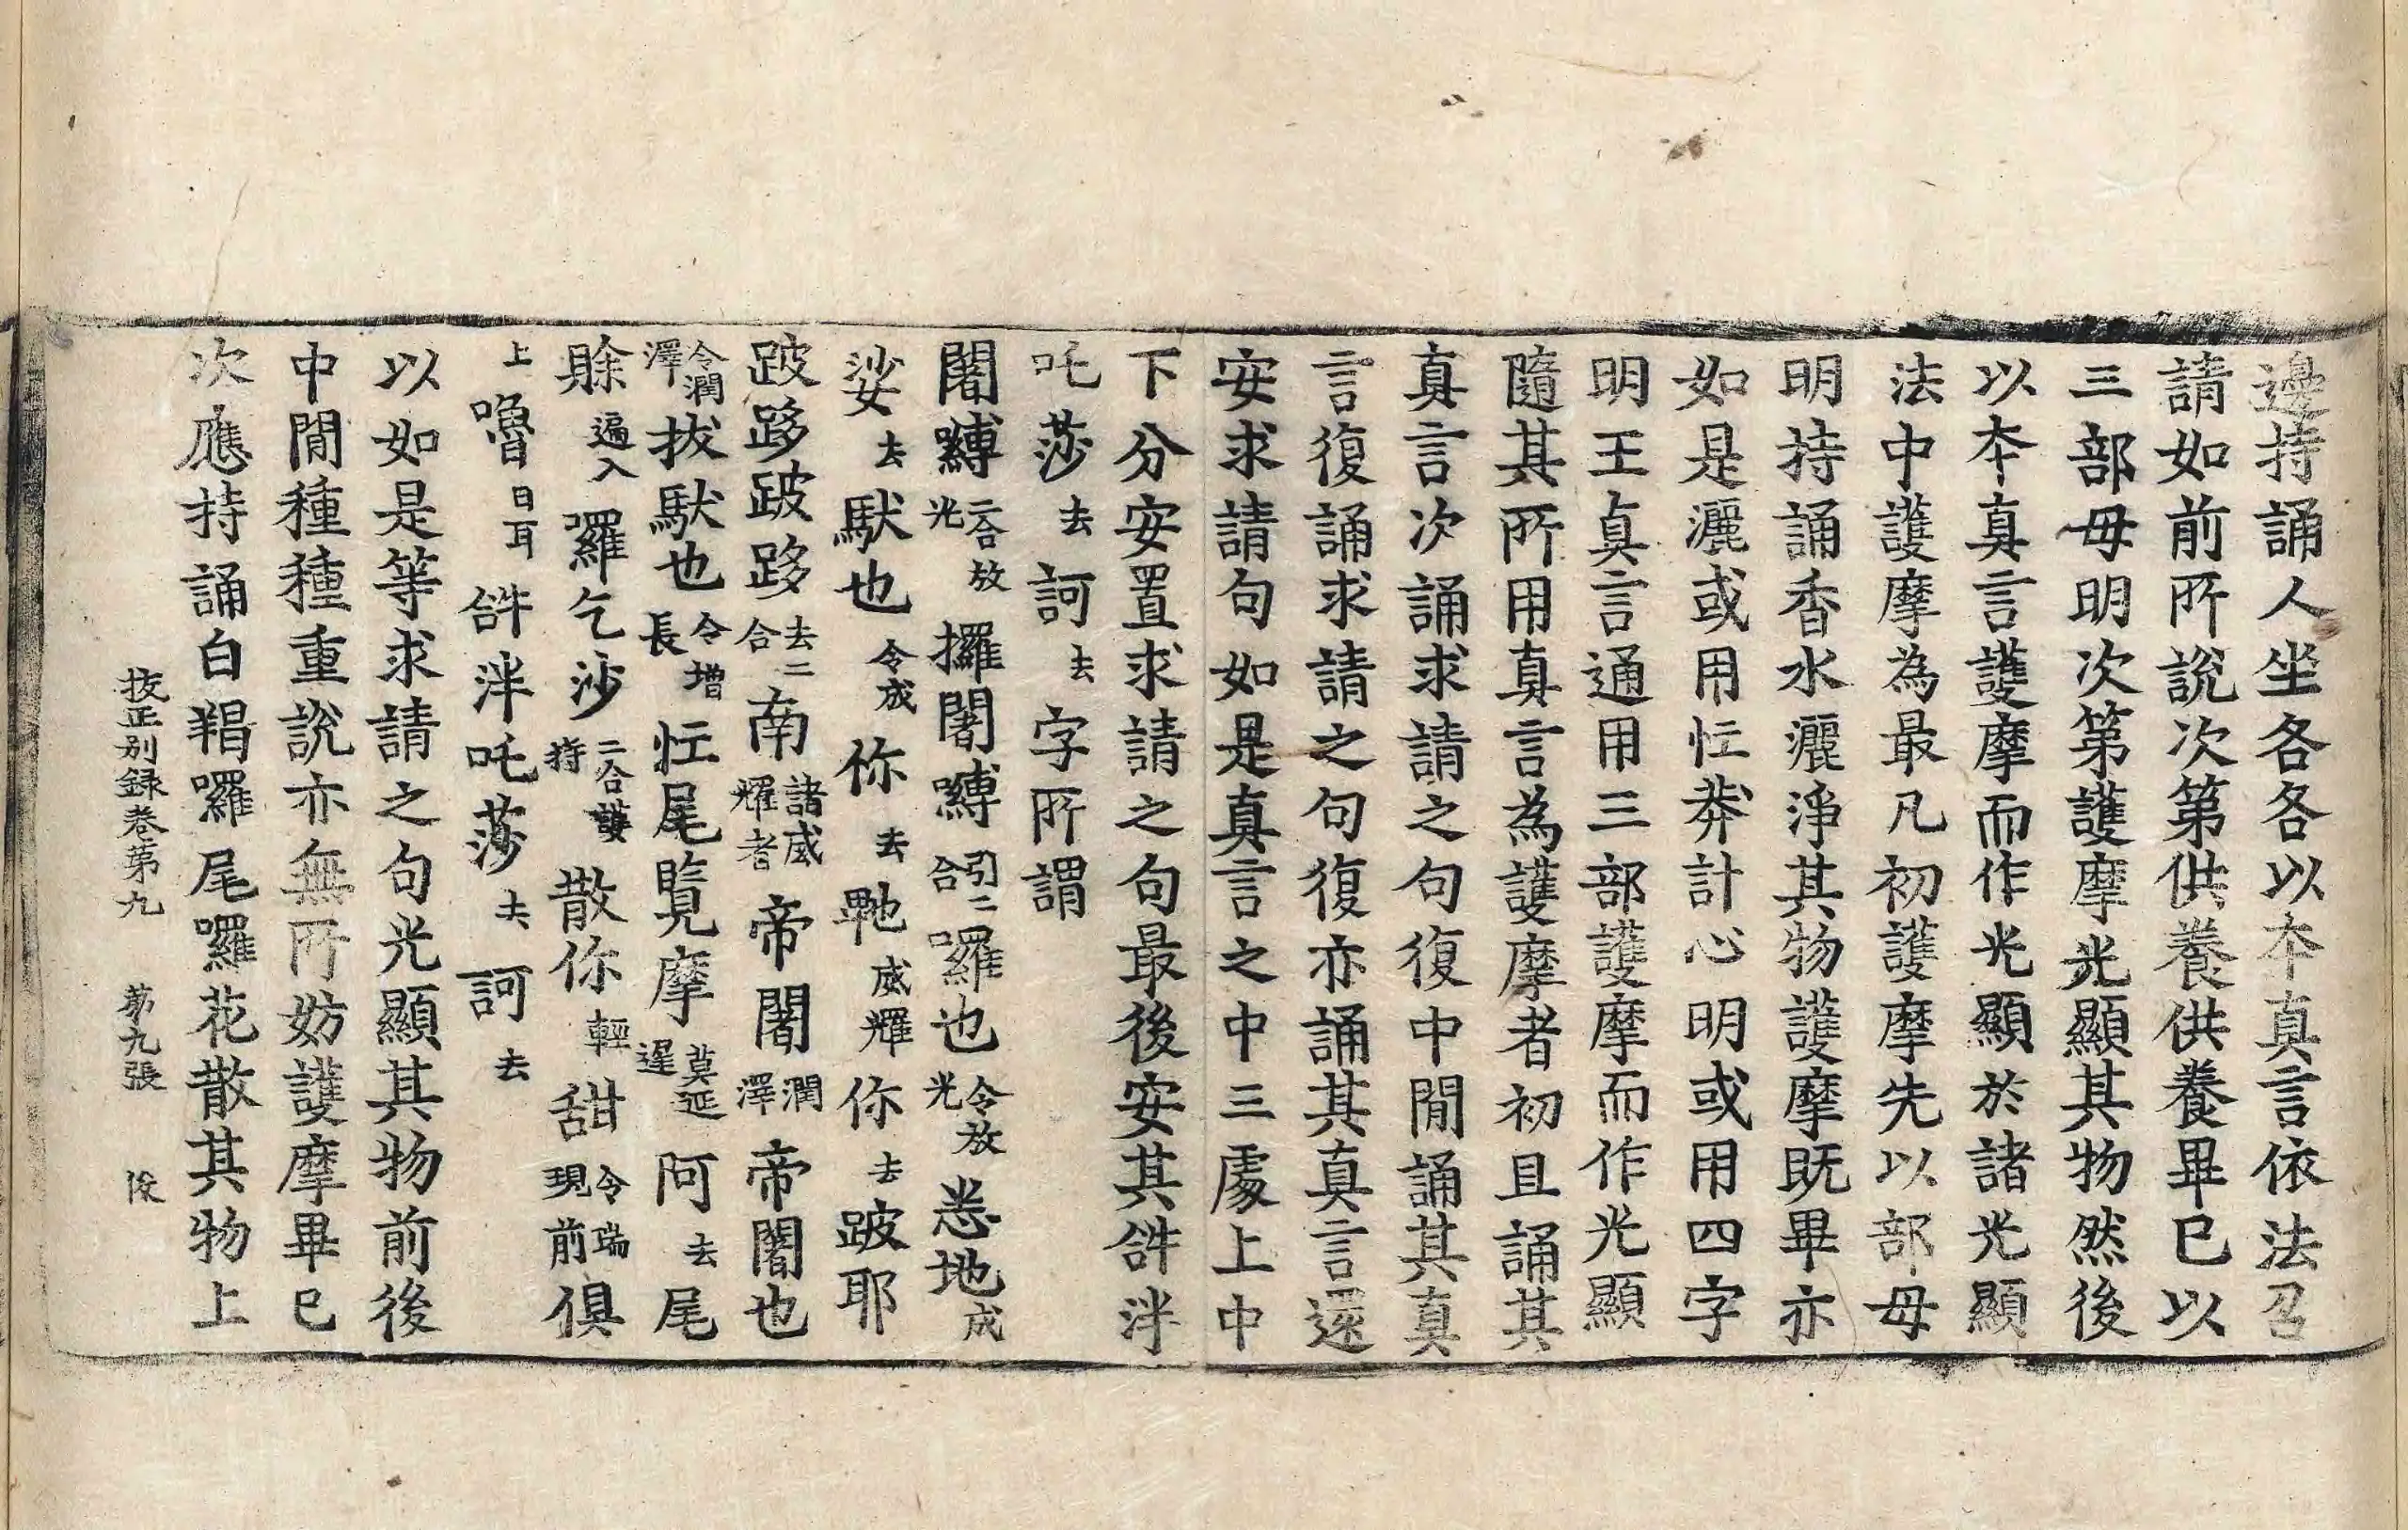 邊持誦人坐各各以本真言依法召
請如前所說次第供養供養畢已以
三部母明次第護摩光顯其物然後
以本真言護摩而作光顯於諸光顯
法中護摩為最凡初護摩先以部母
明持誦香水灑淨其物護摩既畢亦
如是灑或用忙莽計心明或用四字
明王真言通用三部護摩而作光顯
隨其所用真言為護摩者初且誦其
真言次誦求請之句復中閒誦其真
言復誦求請之句復亦誦其真言還
安求請句如是真言之中三處上中
下分安置求請之句最後安其𤙖泮
吒莎去訶去字所謂
闍縛二合放光攞闍縛引二合囉也令放光悉地成
娑去馱也令成你去𭌆威耀你去跛耶
跛跢跛跢去二合南諸威耀者帝闍潤澤帝闍也
令潤澤拔馱也令增長忙尾覽摩莫延遲阿去尾
賒遍入囉乞沙二合護持散你輕甜令瑞現前俱
上嚕日耳𤙖泮吒莎去訶去
以如是等求請之句光顯其物前後
中閒種種重說亦無所妨護摩畢已
次應持誦白羯囉尾囉花散其物上
挍正別錄卷第九 第九張 俊